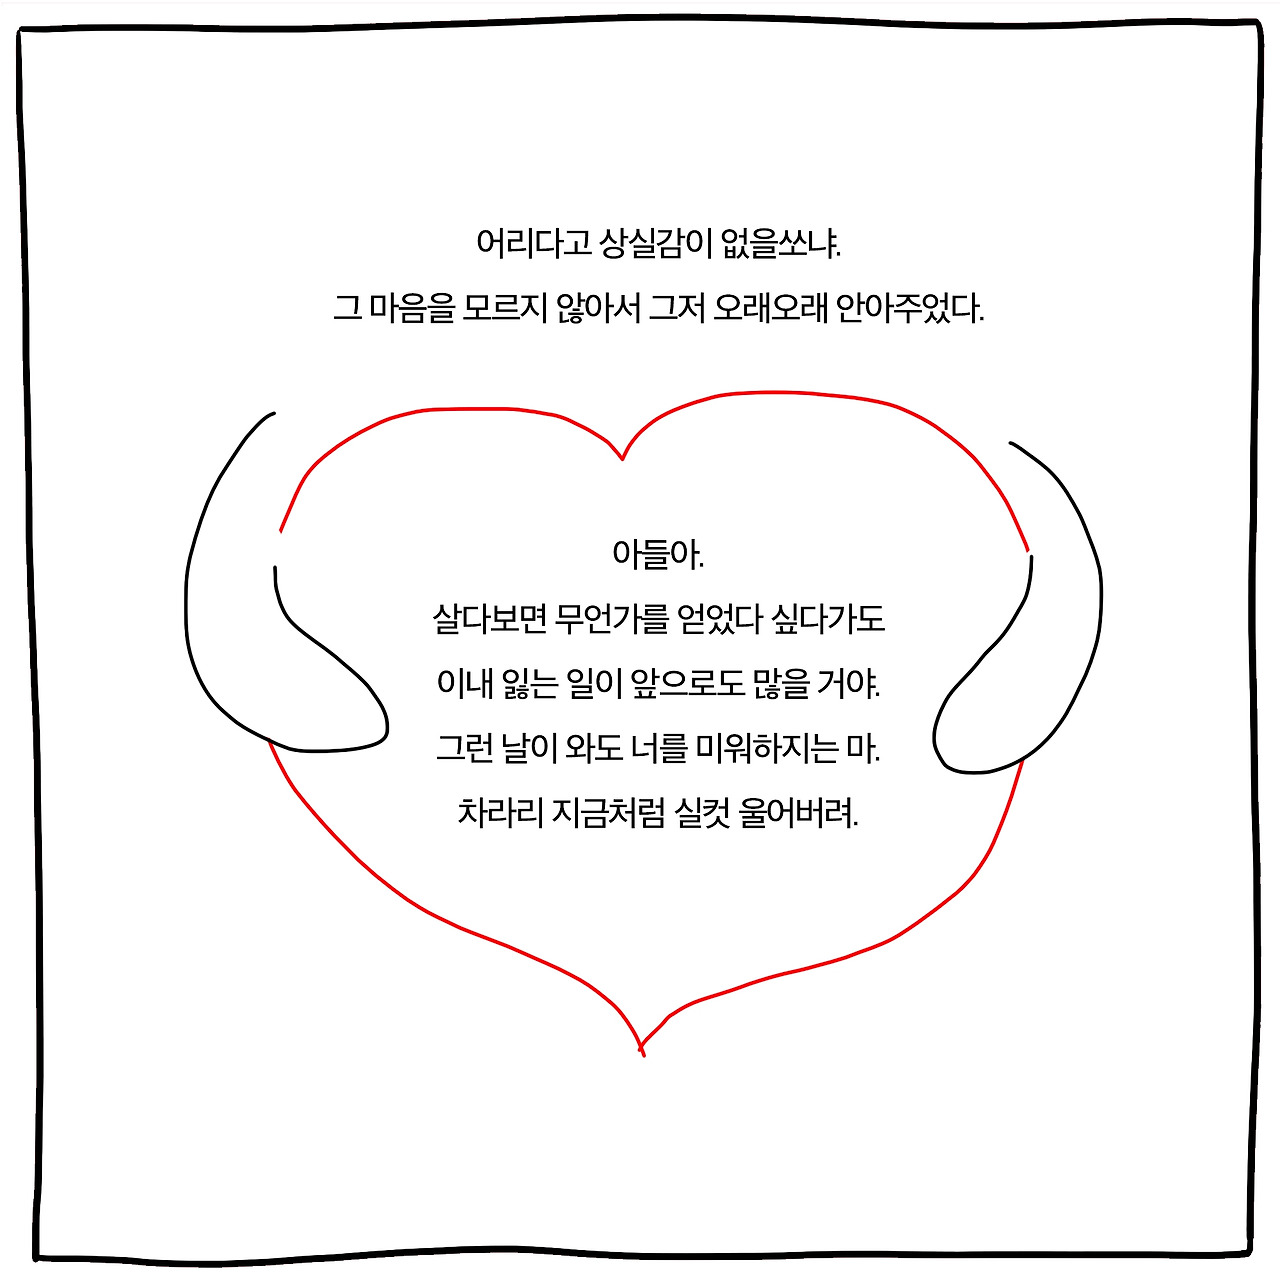 어리다고 상실감이 없을쏘냐.
그 마음을 모르지 않아서 그저 오래오래 안아주었다.
아들아.
살다보면 무언가를 얻었다 싶다가도
이내 잃는 일이 앞으로도 많을 거야.
그런 날이 와도 너를 미워하지는 마.
차라리 지금처럼 실컷 울어버려.